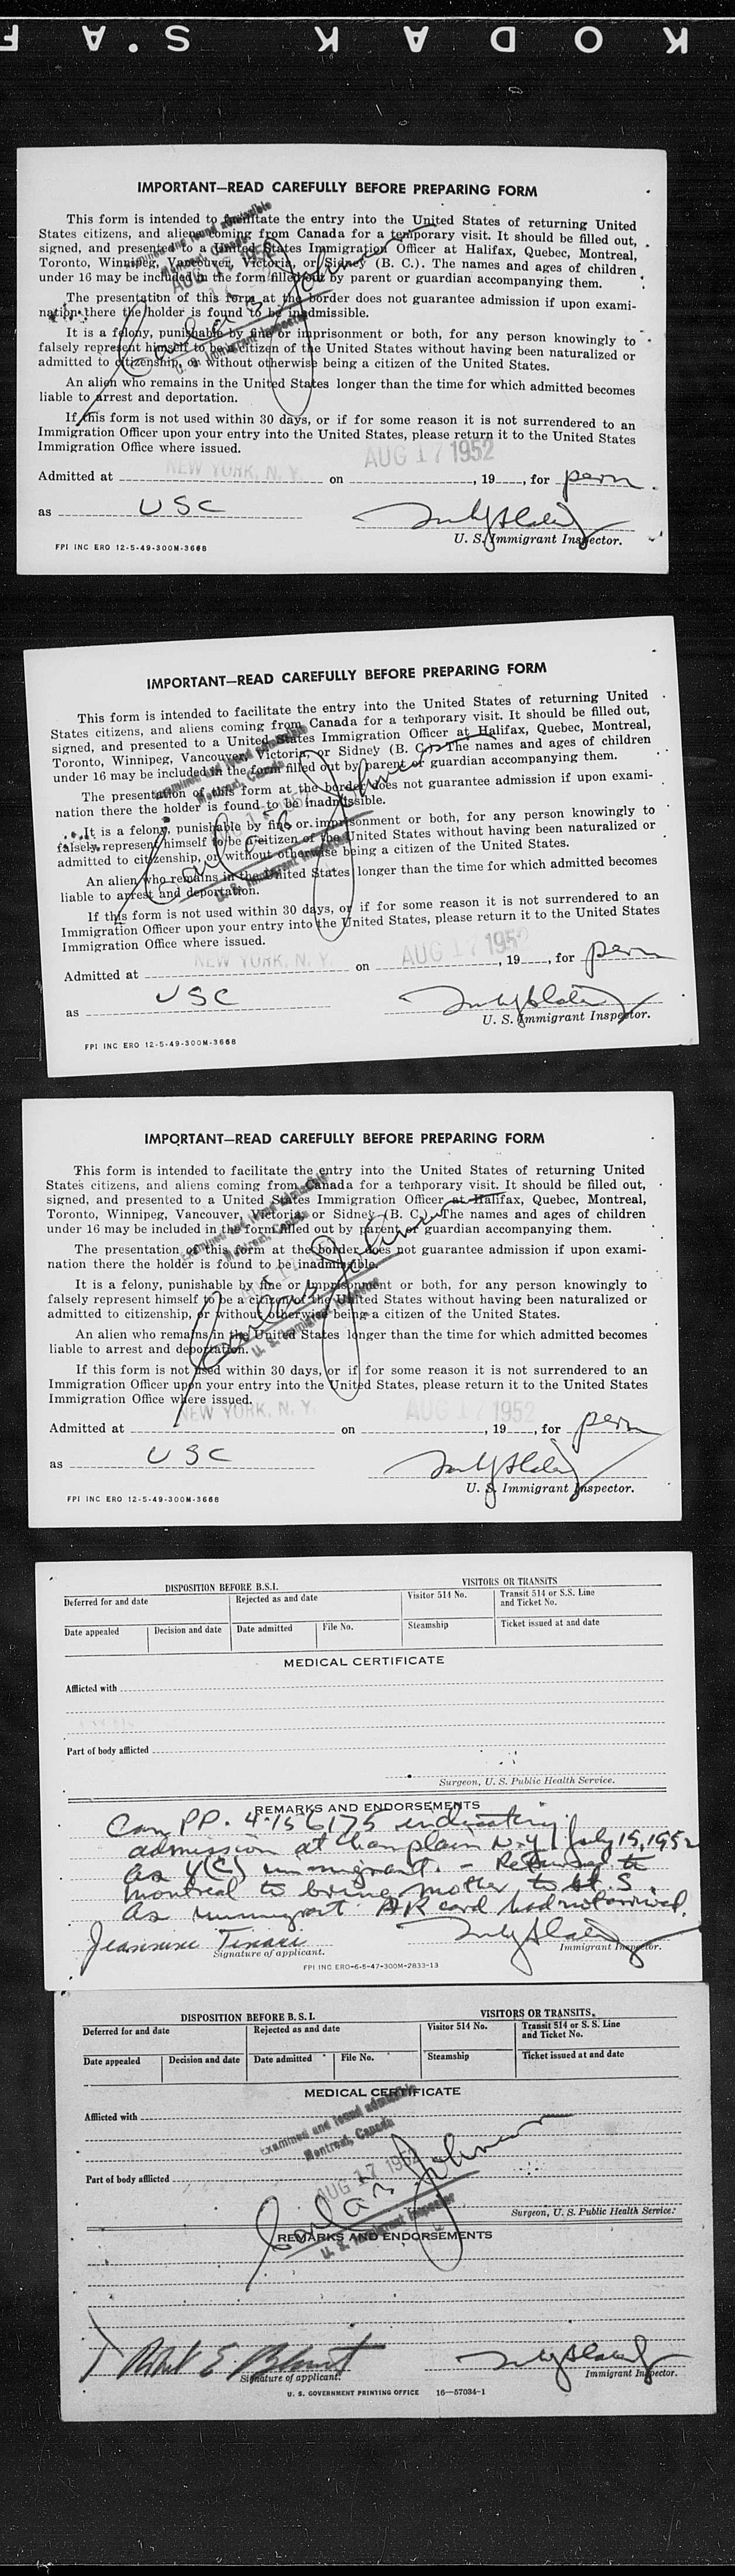 KODAK S.A.F
IMPORTANT—READ CAREFULLY BEFORE PREPARING FORM
This form is intended to facilitate the entry into the United States of returning United
States citizens, and aliens coming from Canada for a temporary visit. It should be filled out,
signed, and presented to a United States Immigration Officer at Halifax, Quebec, Montreal,
Toronto, Winnipeg, Vancouver, Victoria, or Sidney (B. C.). The names and ages of children
under 16 may be included in the form filled out by parent or guardian accompanying them.
The presentation of this form at the border does not guarantee admission if upon exami-
nation there the holder is found to be inadmissible.
It is a felony, punishable by fine or imprisonment or both, for any person knowingly to
falsely represent himself to be a citizen of the United States without having been naturalized or
admitted to citizenship, or without otherwise being a citizen of the United States.
An alien who remains in the United States longer than the time for which admitted becomes
liable to arrest and deportation.
If this form is not used within 30 days, or if for some reason it is not surrendered to an
Immigration Officer upon your entry into the United States, please return it to the United States
Immigration Office where issued.
Examined and found admissible
Montreal, Canada
AUG 17 1952
U. S. Immigrant Inspector
Admitted at NEW YORK, N. Y. on AUG 17 1952, 19__, for perm.
as USC
U. S. Immigrant Inspector.
FPI INC ERO 12-5-49-300M-3668
IMPORTANT—READ CAREFULLY BEFORE PREPARING FORM
This form is intended to facilitate the entry into the United States of returning United
States citizens, and aliens coming from Canada for a temporary visit. It should be filled out,
signed, and presented to a United States Immigration Officer at Halifax, Quebec, Montreal,
Toronto, Winnipeg, Vancouver, Victoria, or Sidney (B. C.). The names and ages of children
under 16 may be included in the form filled out by parent or guardian accompanying them.
The presentation of this form at the border does not guarantee admission if upon exami-
nation there the holder is found to be inadmissible.
It is a felony, punishable by fine or imprisonment or both, for any person knowingly to
falsely represent himself to be a citizen of the United States without having been naturalized or
admitted to citizenship, or without otherwise being a citizen of the United States.
An alien who remains in the United States longer than the time for which admitted becomes
liable to arrest and deportation.
If this form is not used within 30 days, or if for some reason it is not surrendered to an
Immigration Officer upon your entry into the United States, please return it to the United States
Immigration Office where issued.
Examined and found admissible
Montreal, Canada
U. S. Immigrant Inspector
Admitted at NEW YORK, N. Y. on AUG 17 1952, 19__, for perm
as USC
U. S. Immigrant Inspector.
FPI INC ERO 12-5-49-300M-3668
IMPORTANT—READ CAREFULLY BEFORE PREPARING FORM
This form is intended to facilitate the entry into the United States of returning United
States citizens, and aliens coming from Canada for a temporary visit. It should be filled out,
signed, and presented to a United States Immigration Officer at Halifax, Quebec, Montreal,
Toronto, Winnipeg, Vancouver, Victoria, or Sidney (B. C.). The names and ages of children
under 16 may be included in the form filled out by parent or guardian accompanying them.
The presentation of this form at the border does not guarantee admission if upon exami-
nation there the holder is found to be inadmissible.
It is a felony, punishable by fine or imprisonment or both, for any person knowingly to
falsely represent himself to be a citizen of the United States without having been naturalized or
admitted to citizenship, or without otherwise being a citizen of the United States.
An alien who remains in the United States longer than the time for which admitted becomes
liable to arrest and deportation.
If this form is not used within 30 days, or if for some reason it is not surrendered to an
Immigration Officer upon your entry into the United States, please return it to the United States
Immigration Office where issued.
Examined and found admissible
Montreal, Canada
U. S. Immigrant Inspector
Admitted at NEW YORK, N. Y. on AUG 17 1952, 19__, for perm
as USC
U. S. Immigrant Inspector.
FPI INC ERO 12-5-49-300M-3668
DISPOSITION BEFORE B.S.I. VISITORS OR TRANSITS
Deferred for and date Rejected as and date Visitor 514 No. Transit 514 or S.S. Line
and Ticket No.
Date appealed Decision and date Date admitted File No. Steamship Ticket issued at and date
MEDICAL CERTIFICATE
Afflicted with
Part of body afflicted
Surgeon, U. S. Public Health Service.
REMARKS AND ENDORSEMENTS
Can PP. 4-156175 indicating
admission at Champlain N.Y. July 15, 1952
as 4(C) immigrant. - Returned to
Montreal to bring mother to U. S.
as immigrant. AR card had not arrived.
Jeannine Tinari
Signature of applicant. Immigrant Inspector.
FPI INC ERO-6-5-47-300M-2833-13
DISPOSITION BEFORE B. S. I. VISITORS OR TRANSITS.
Deferred for and date Rejected as and date Visitor 514 No. Transit 514 or S. S. Line
and Ticket No.
Date appealed Decision and date Date admitted File No. Steamship Ticket issued at and date
MEDICAL CERTIFICATE
Afflicted with
Examined and found admissible
Montreal, Canada
AUG 17 1952
Part of body afflicted
Surgeon, U. S. Public Health Service.
REMARKS AND ENDORSEMENTS
U. S. Immigrant Inspector
Robert E.
Signature of applicant. Immigrant Inspector.
U. S. GOVERNMENT PRINTING OFFICE 16—57034-1